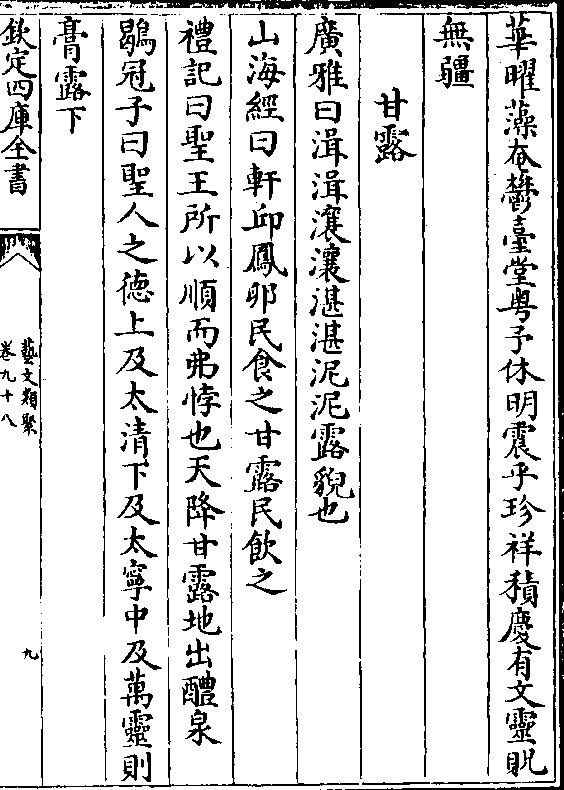 華曜藻奄鬱臺堂粤予休明震乎珍祥積慶有文靈貺
無疆
甘露
廣雅曰湒湒瀼瀼湛湛泥泥露貌也
山海經曰軒丘鳳卵民食之甘露民飲之
禮記曰聖王所以順而弗悖也天降甘露地出醴泉
鶡冠子曰聖人之德上及太清下及太寧中及萬靈則
膏露下
欽定四庫全書
藝文類聚
卷九十八
九